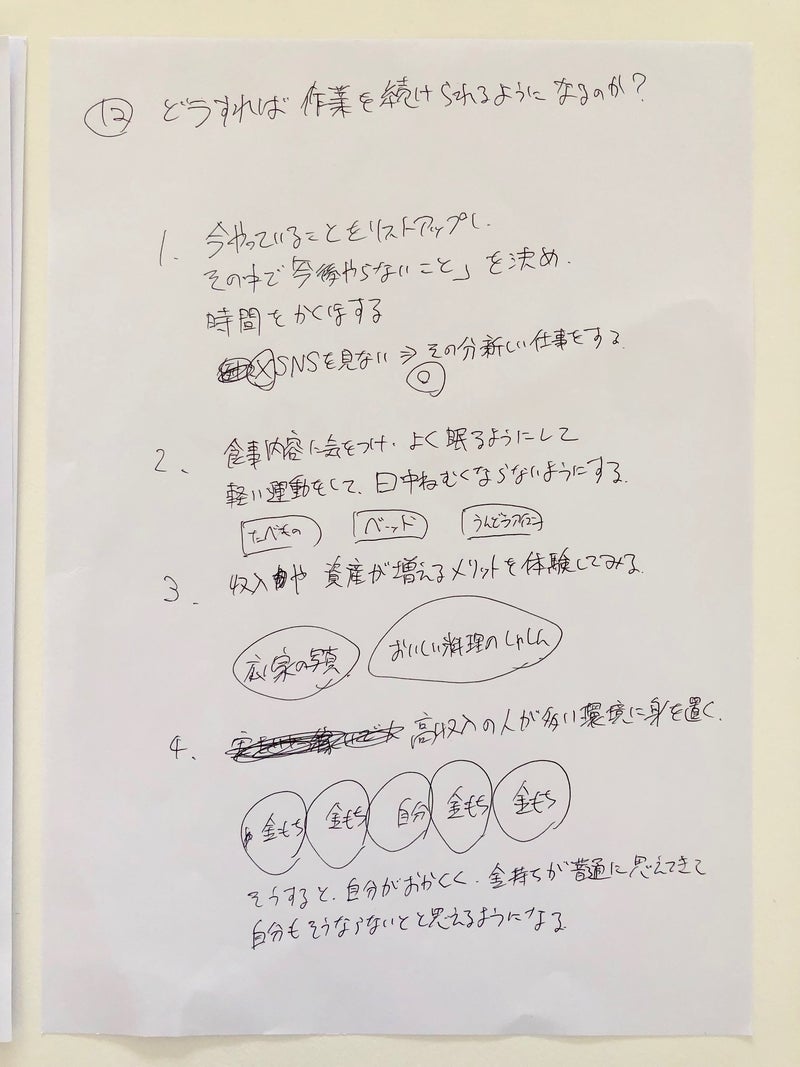 ⑫ どうすれば 作業を続けられるようになるのか?
1. 今やっていることをリストアップし、
その中で「今後やらないこと」を決め、
時間をかくほする
Ⓧ SNSを見ない ⇒ その分新しい仕事をする
◎
2. 食事内容に気をつけ、よく眠るようにして
軽い運動をして、日中ねむくならないようにする。
たべもの ベッド うんどうアイコン
3. 収入や 資産が増えるメリットを体験してみる。
広い家の写真 おいしい料理のしゃしん
4. 高収入の人が多い環境に身を置く。
金もち 金もち 自分 金もち 金もち
そうすると、自分がおかしく、金持ちが普通に思えてきて
自分もそうならないとと思えるようになる